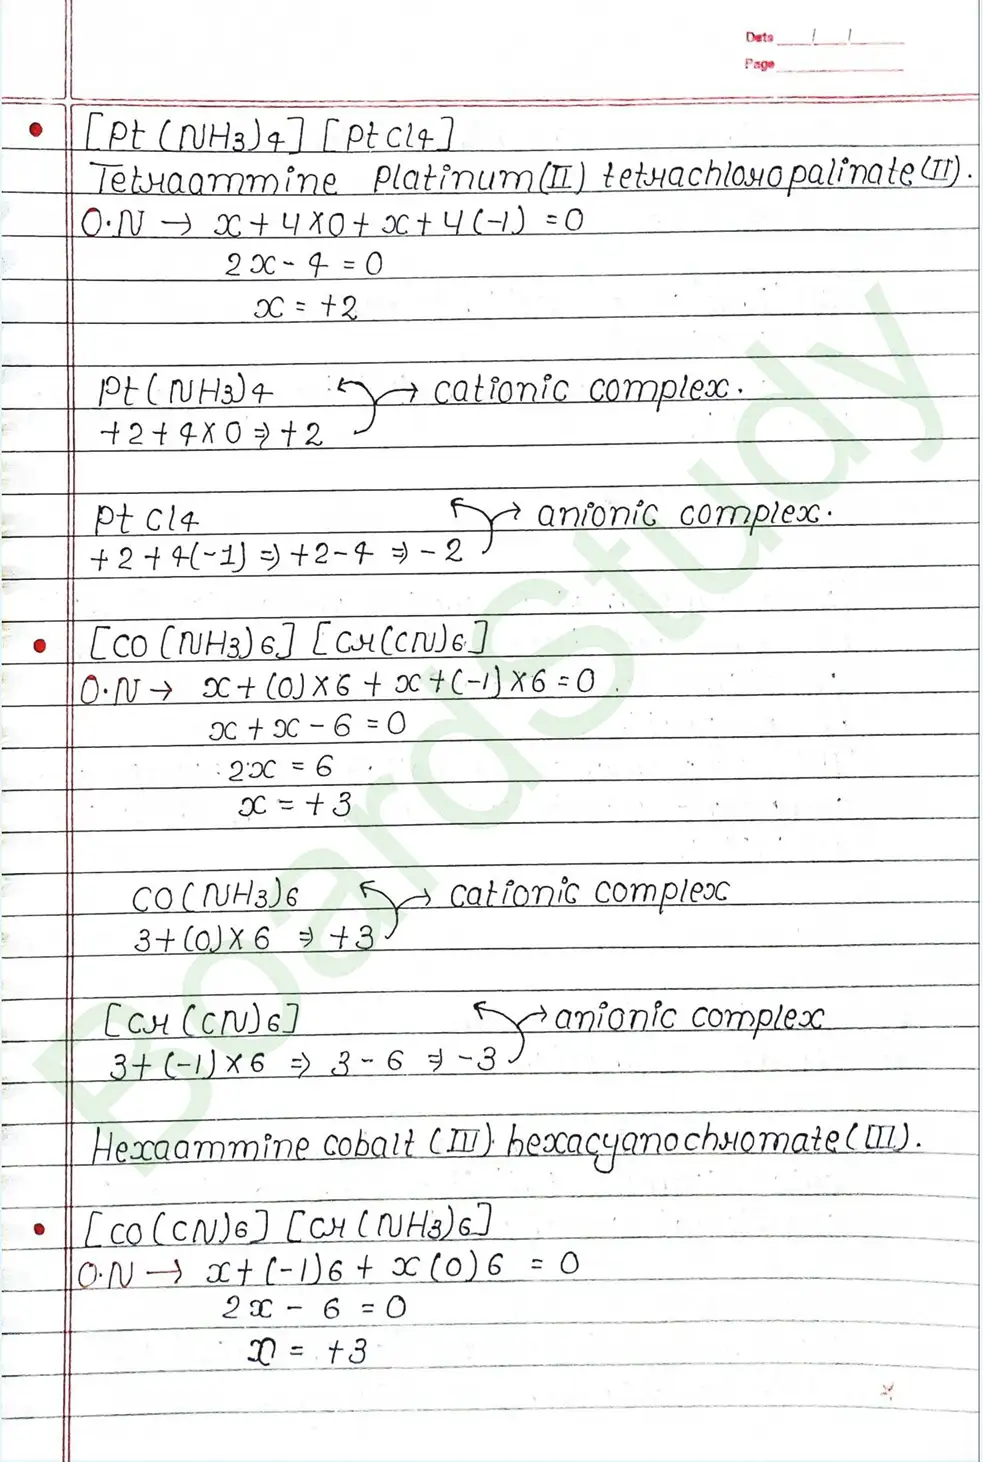 Date / /
Page
[Pt(NH3)4] [PtCl4]
Tetraammine Platinum(II) tetrachloropalinate(II).
O.N → x + 4×0 + x + 4(-1) = 0
2x - 4 = 0
x = +2
Pt(NH3)4 → cationic complex.
+2+4×0 ⇒ +2
PtCl4 → anionic complex.
+2+4(-1) ⇒ +2-4 ⇒ -2
[CO(NH3)6] [Cr(CN)6]
O.N → x+(0)×6 + x+(-1)×6=0
x + x - 6 = 0
2x = 6
x = +3
CO(NH3)6 → cationic complex
3+(0)×6 ⇒ +3
[Cr(CN)6] → anionic complex
3+(-1)×6 ⇒ 3-6 ⇒ -3
Hexaammine cobalt (III) hexacyanochromate(III).
[CO(CN)6] [Cr(NH3)6]
O.N → x+(-1)6 + x(0)6 = 0
2x - 6 = 0
x = +3
BoardStudy